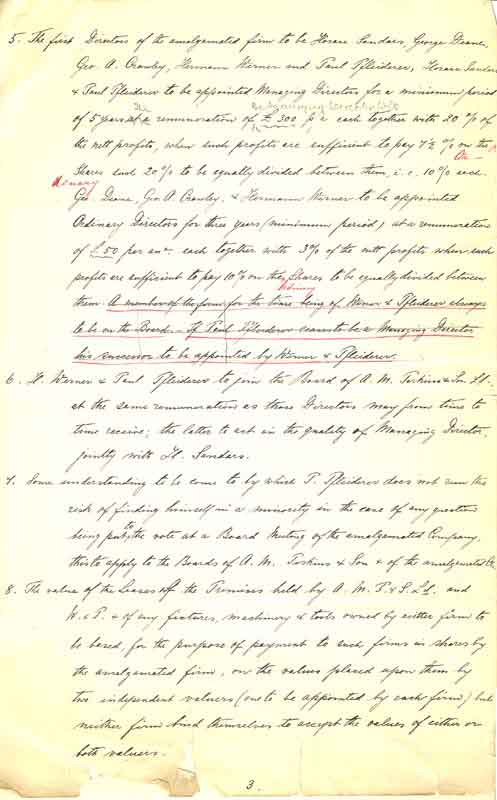 5. The first Directors of the amalgamated firm to be Horace Sanders, George Deane,
Geo. A. Crawley, Hermann Werner and Paul Pfleiderer, Horace Sanders
& Paul Pfleiderer to be appointed Managing Directors for a minimum period
of 5 years at a remuneration of £300 p a each together with 20% of
the nett profits, when such profits are sufficient to pay 7½% on the
Shares such 20% to be equally divided between them, i.e. 10% each.
Geo. Deane, Geo A Crawley, & Hermann Werner to be appointed
Ordinary
Ordinary Directors for three years (minimum period) at a remuneration
of £50 per anm. each together with 3% of the nett profits when such
profits are sufficient to pay 10% on the Shares to be equally divided between
Ordinary
them. A member of the firm for the time being of Werner & Pfleiderer always
to be on the Board - If Paul Pfleiderer ceases to be a Managing Director
his successor to be appointed by Werner & Pfleiderer.
6. H. Werner & Paul Pfleiderer to join the Board of A. M. Perkins & Son Ld.
at the same remuneration as those Directors may from time to
time receive; the latter to act in the quality of Managing Director,
jointly with H. Sanders.
7. Some understanding to be come to by which P. Pfleiderer does not run the
risk of finding himself in a minority in the case of any question
being put to the vote at a Board Meeting of the amalgamated Company,
this to apply to the Boards of A. M. Perkins & Son & of the amalgamated Co.
8. The value of the Leases of the Premises held by A. M. P. & S. Ld. and
W. & P. & of any fixtures, machinery & tools owned by either firm to
be based, for the purpose of payment to such firms in shares by
the amalgamated firm, on the values placed upon them by
two independent valuers (one to be appointed by each firm) but
neither firm bind themselves to accept the values of either or
both valuers.
3.